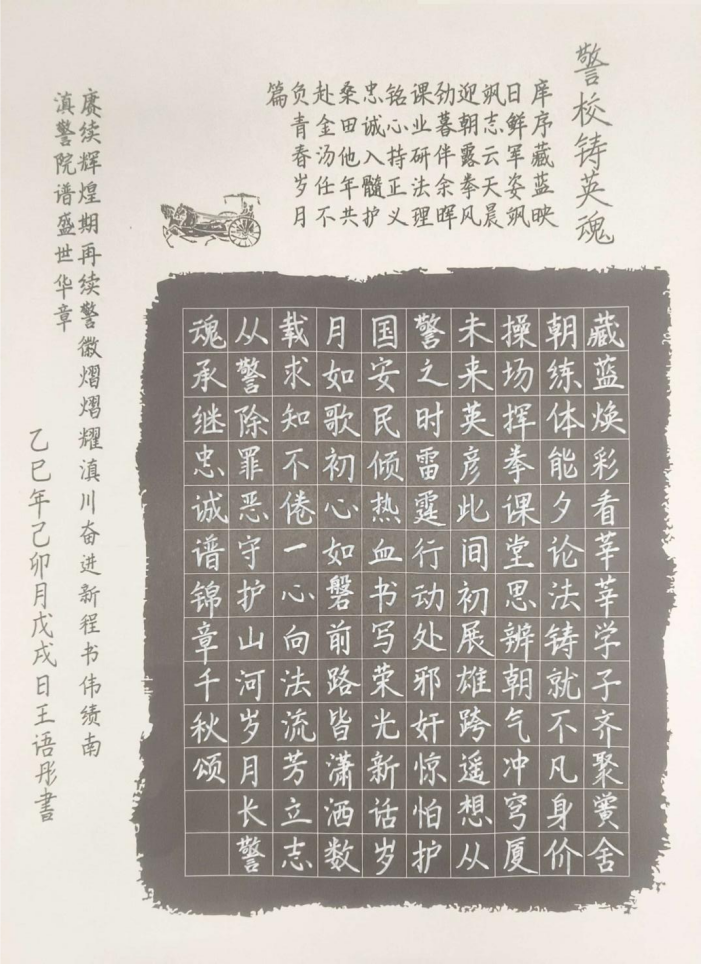 警校铸英魂
庠序藏蓝映
日鲜军姿飒
飒志云天晨
迎朝露拳风
劲暮伴余晖
课业研法理
铭心持正义
忠诚入髓护
桑田他年共
赴金汤任不
负青春岁月
篇
藏蓝焕彩看莘莘学子齐聚黉舍
朝练体能夕论法铸就不凡身价
操场挥拳课堂思辨朝气冲穹厦
未来英彦此间初展雄跨遥想从
警之时雷霆行动处邪奸惊怕护
国安民倾热血书写荣光新话岁
月如歌初心如磐前路皆潇洒数
载求知不倦一心向法流芳立志
从警除罪恶守护山河岁月长警
魂承继忠诚谱锦章千秋颂
赓续辉煌期再续警徽熠熠耀滇川奋进新程书伟绩南
滇警院谱盛世华章
乙巳年己卯月戊戌日王语彤書